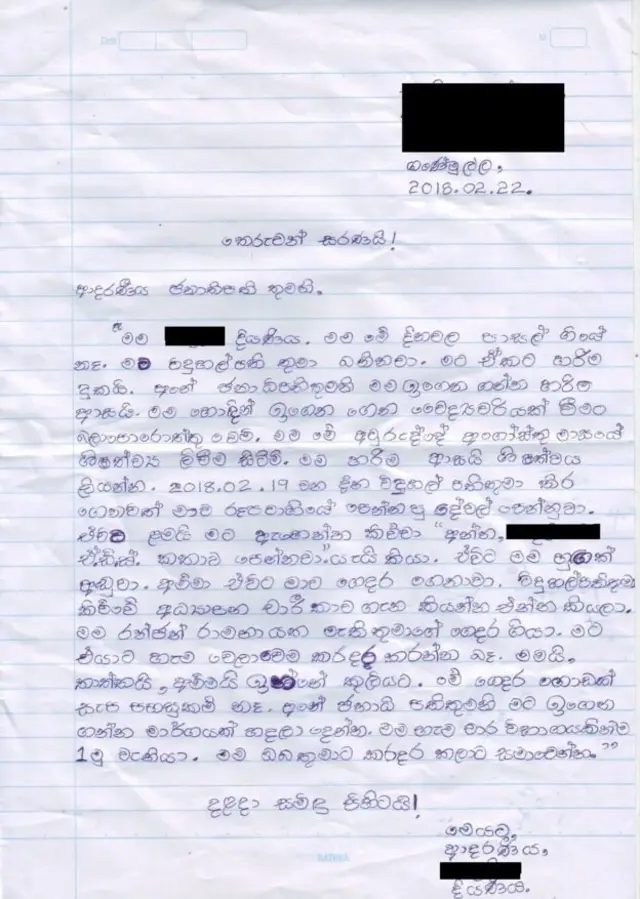 Date
ගණේමුල්ල,
2018.02.22.
තෙරුවන් සරණයි!
ආදරණීය ජනාතිපති තුමනි.
"මම දියණිය. මම මේ දිනවල පාසල් ගියේ
නෑ. මට විදුහල්පති තුමා බනිනවා. මට ඒකට හරිම
දුකයි. අනේ ජනාධිපතිතුමනි මම ඉගෙන ගන්න හරිම
ආසයි. මම හොඳින් ඉගෙන ගෙන වෛද්‍යවරියක් වීමට
බලාපොරොත්තු වෙමි. මම මේ අවුරුද්දේ අගෝස්තු මාසයේ
ශිෂත්ව්‍ය ලිවීම සිටිමි. මම හරිම ආසයි ශිෂත්වය
ලියන්න. 2018.02.19 වන දින විදුහල් පතිතුමා
ගෙනවත් මාව රූපවාහියේ පෙන්නපු දේවල් පෙන්නුවා.
එවිට ළමයි මට ඇහෙන්න කිව්වා "අන්න,
ඒඩ්ස්. කතාව පෙන්නවා."යැයි කියා. එවිට මම හුඟක්
අඬුවා. අම්මා එවිට මාව ගෙදර ගෙනාවා. විදුහල්පතිතුමා
කිව්වේ අධ්‍යාපන චාරිකාව ගැන කියන්න එන්න කියලා.
මම රන්ජන් රාමනායක මැතිතුමාගේ ගෙදර ගියා. මට
එයාට හැම වෙලාවෙම කරදර කරන්න බෑ. මමයි,
තාත්තයි, අම්මයි ඉන්නේ කුලියට. මේ ගෙදර ගොඩක්
සැප පහසුකම් නෑ. අනේ ජනාධි පතිතුමනි මට ඉගෙන
ගන්න මාර්ගයක් හදලා දෙන්න. මම හැම වාර විභාගයකින්ම
1මු වැනියා. මම ඔබතුමාට කරදර කලාට සමාවෙන්න."
දළදා සමිඳු පිහිටයි!
මෙයට,
ආදරණීය,
දියණිය.
RATHNA